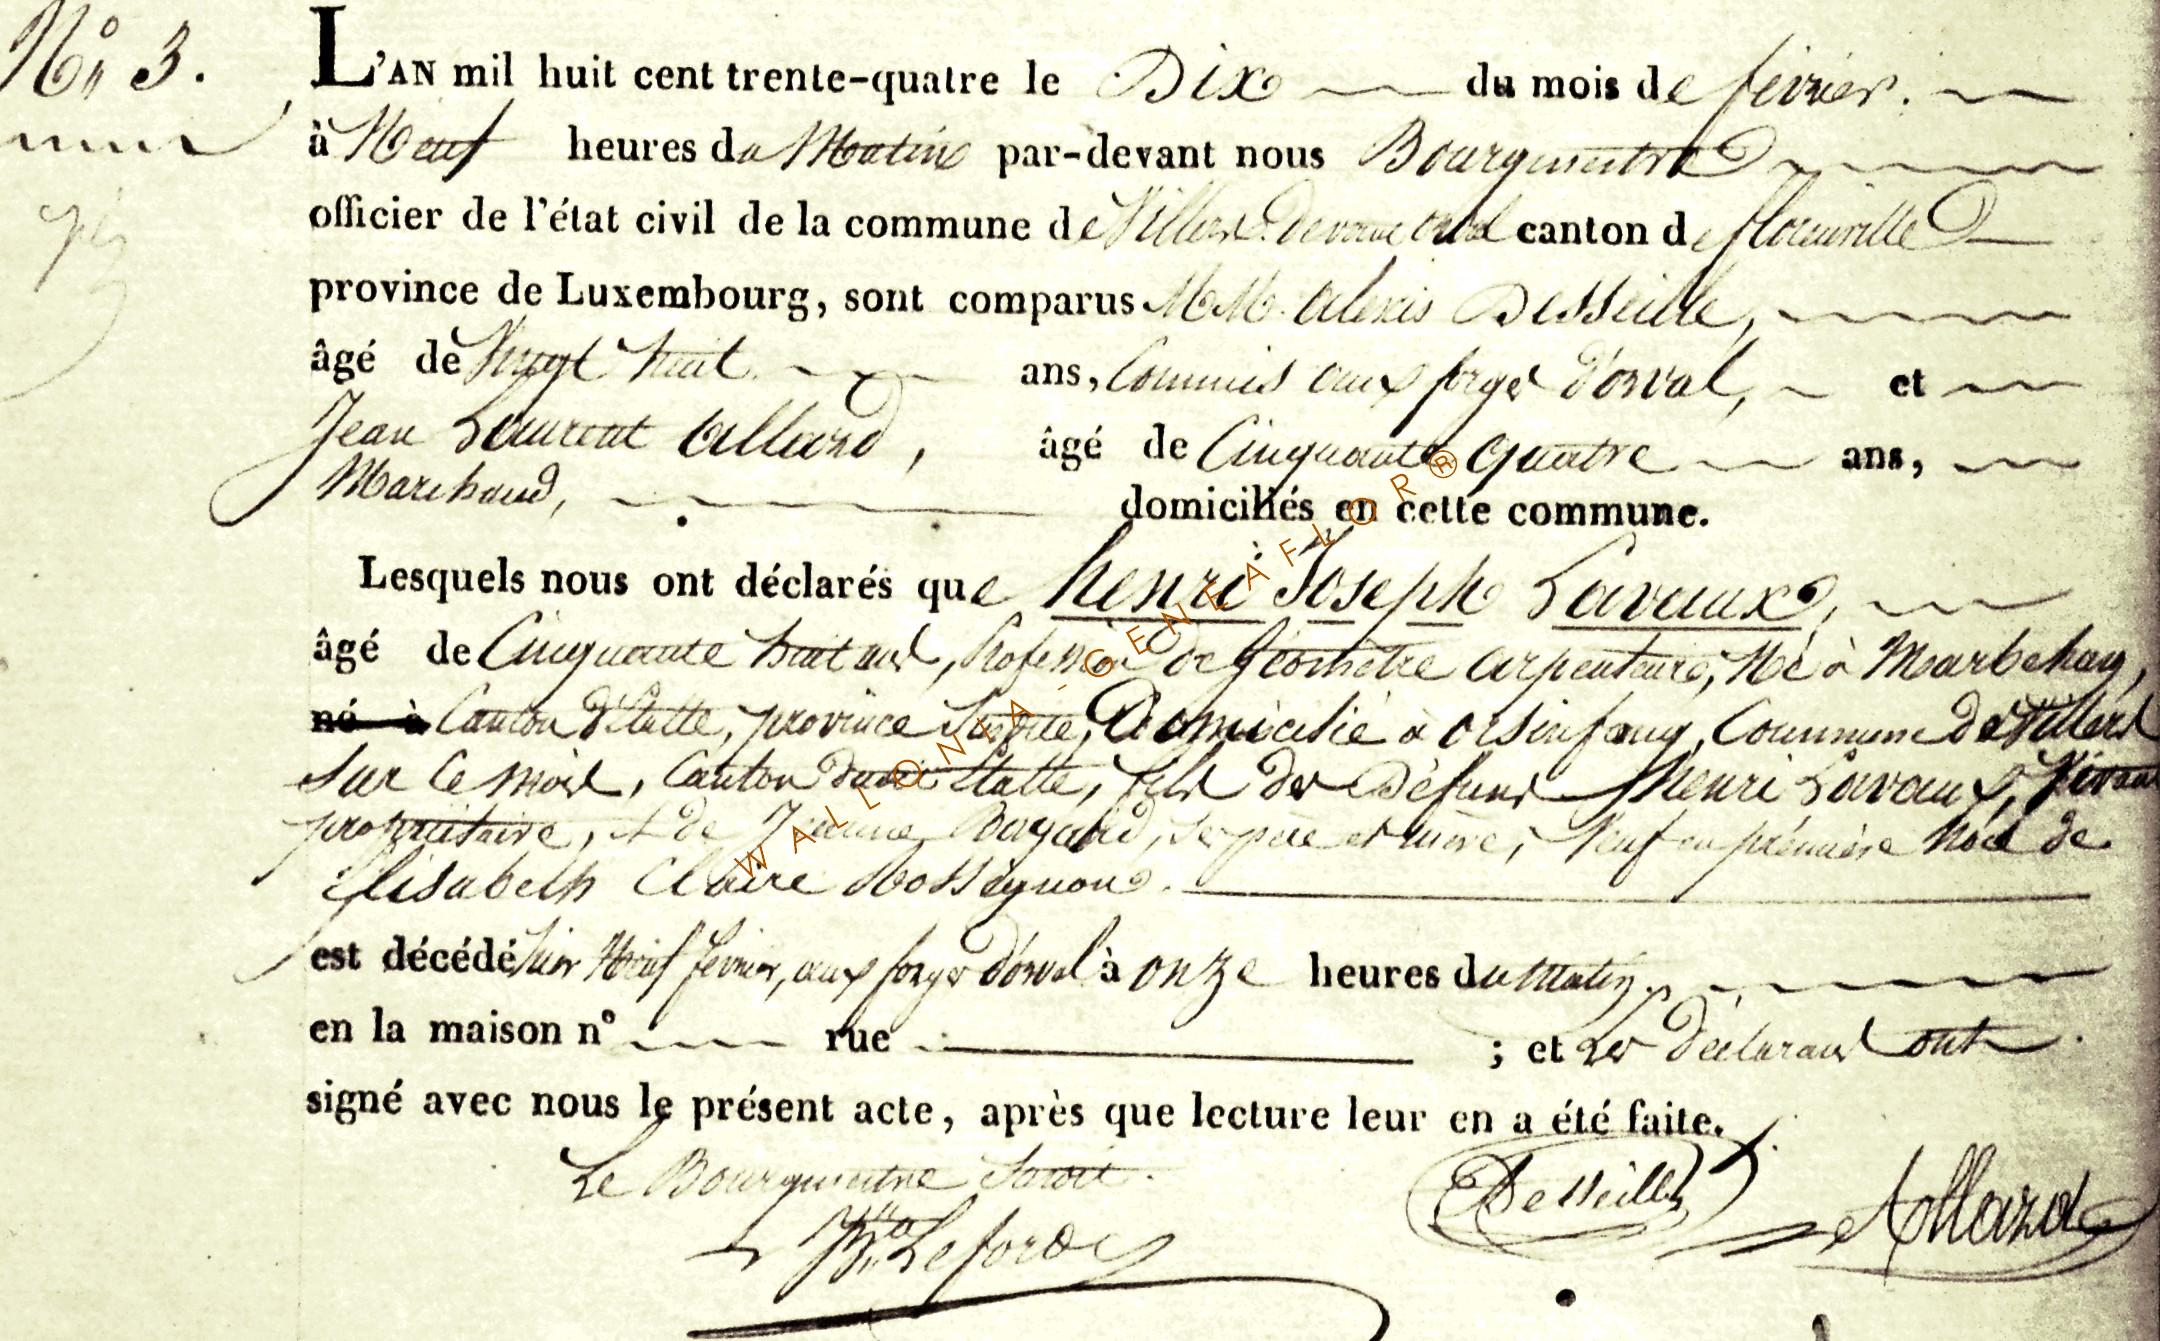 N° 3.
L'AN mil huit cent trente-quatre le Dix du mois de février.
à Neuf heures du Matin par-devant nous Bourgmestre
officier de l'état civil de la commune de Villers devant orval canton de florenville
province de Luxembourg, sont comparus MM. Alexis Desseille,
âgé de Vingt huit ans, Commis aux forges d'orval, et
Jean Laurent Allard, âgé de Cinquante quatre ans,
Marchand, domiciliés en cette commune.
Lesquels nous ont déclarés que henri Joseph Lavaux,
âgé de Cinquante huit ans, Profession de géomètre arpenteur, Né à Marbehay,
né à Canton d'Etalle, province Susdite, Domicilié à orsinfaing, Commune de Villers
sur Semois, Canton Etalle, fils des Défunts henri Lavaux, Vivant
propriétaire, & de Jeanne Bayard, ses père et mère, Veuf en première Noce de
Elisabeth Claire Rossignon.
est décédé hier Neuf février, aux forges d'orval à onze heures du Matin.
en la maison n° rue ; et Les Déclarans ont
signé avec nous le présent acte, après que lecture leur en a été faite.
Le Bourgmestre
Desseille Allard
Lefort
WALLONIA-GENEAFLOR®